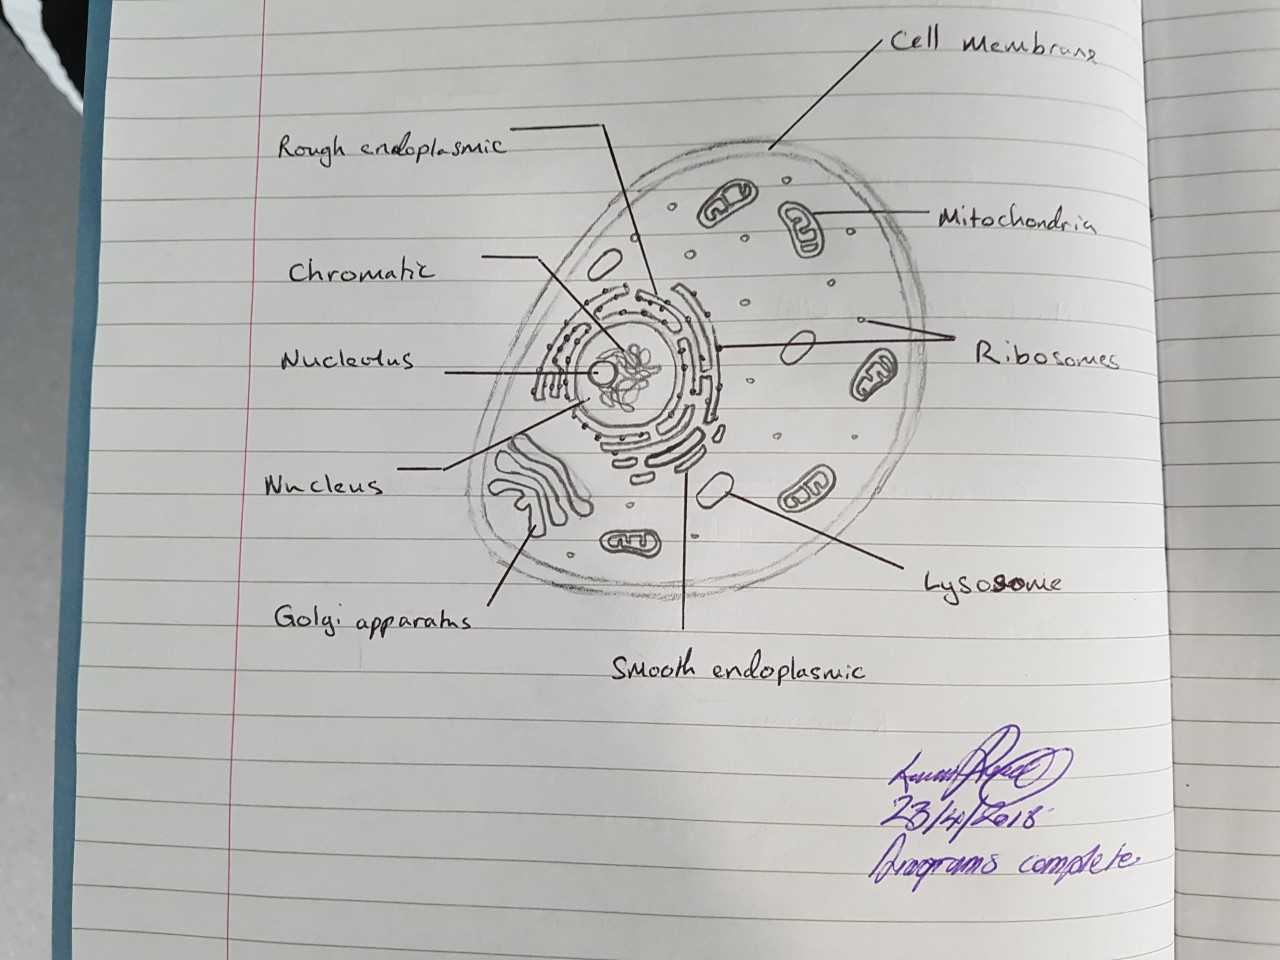 Cell membrane
Rough endoplasmic
Mitochondria
Chromatic
Nucleolus
Ribosomes
Nucleus
Lysosome
Golgi apparatus
Smooth endoplasmic
23/4/2018
Diagrams complete.